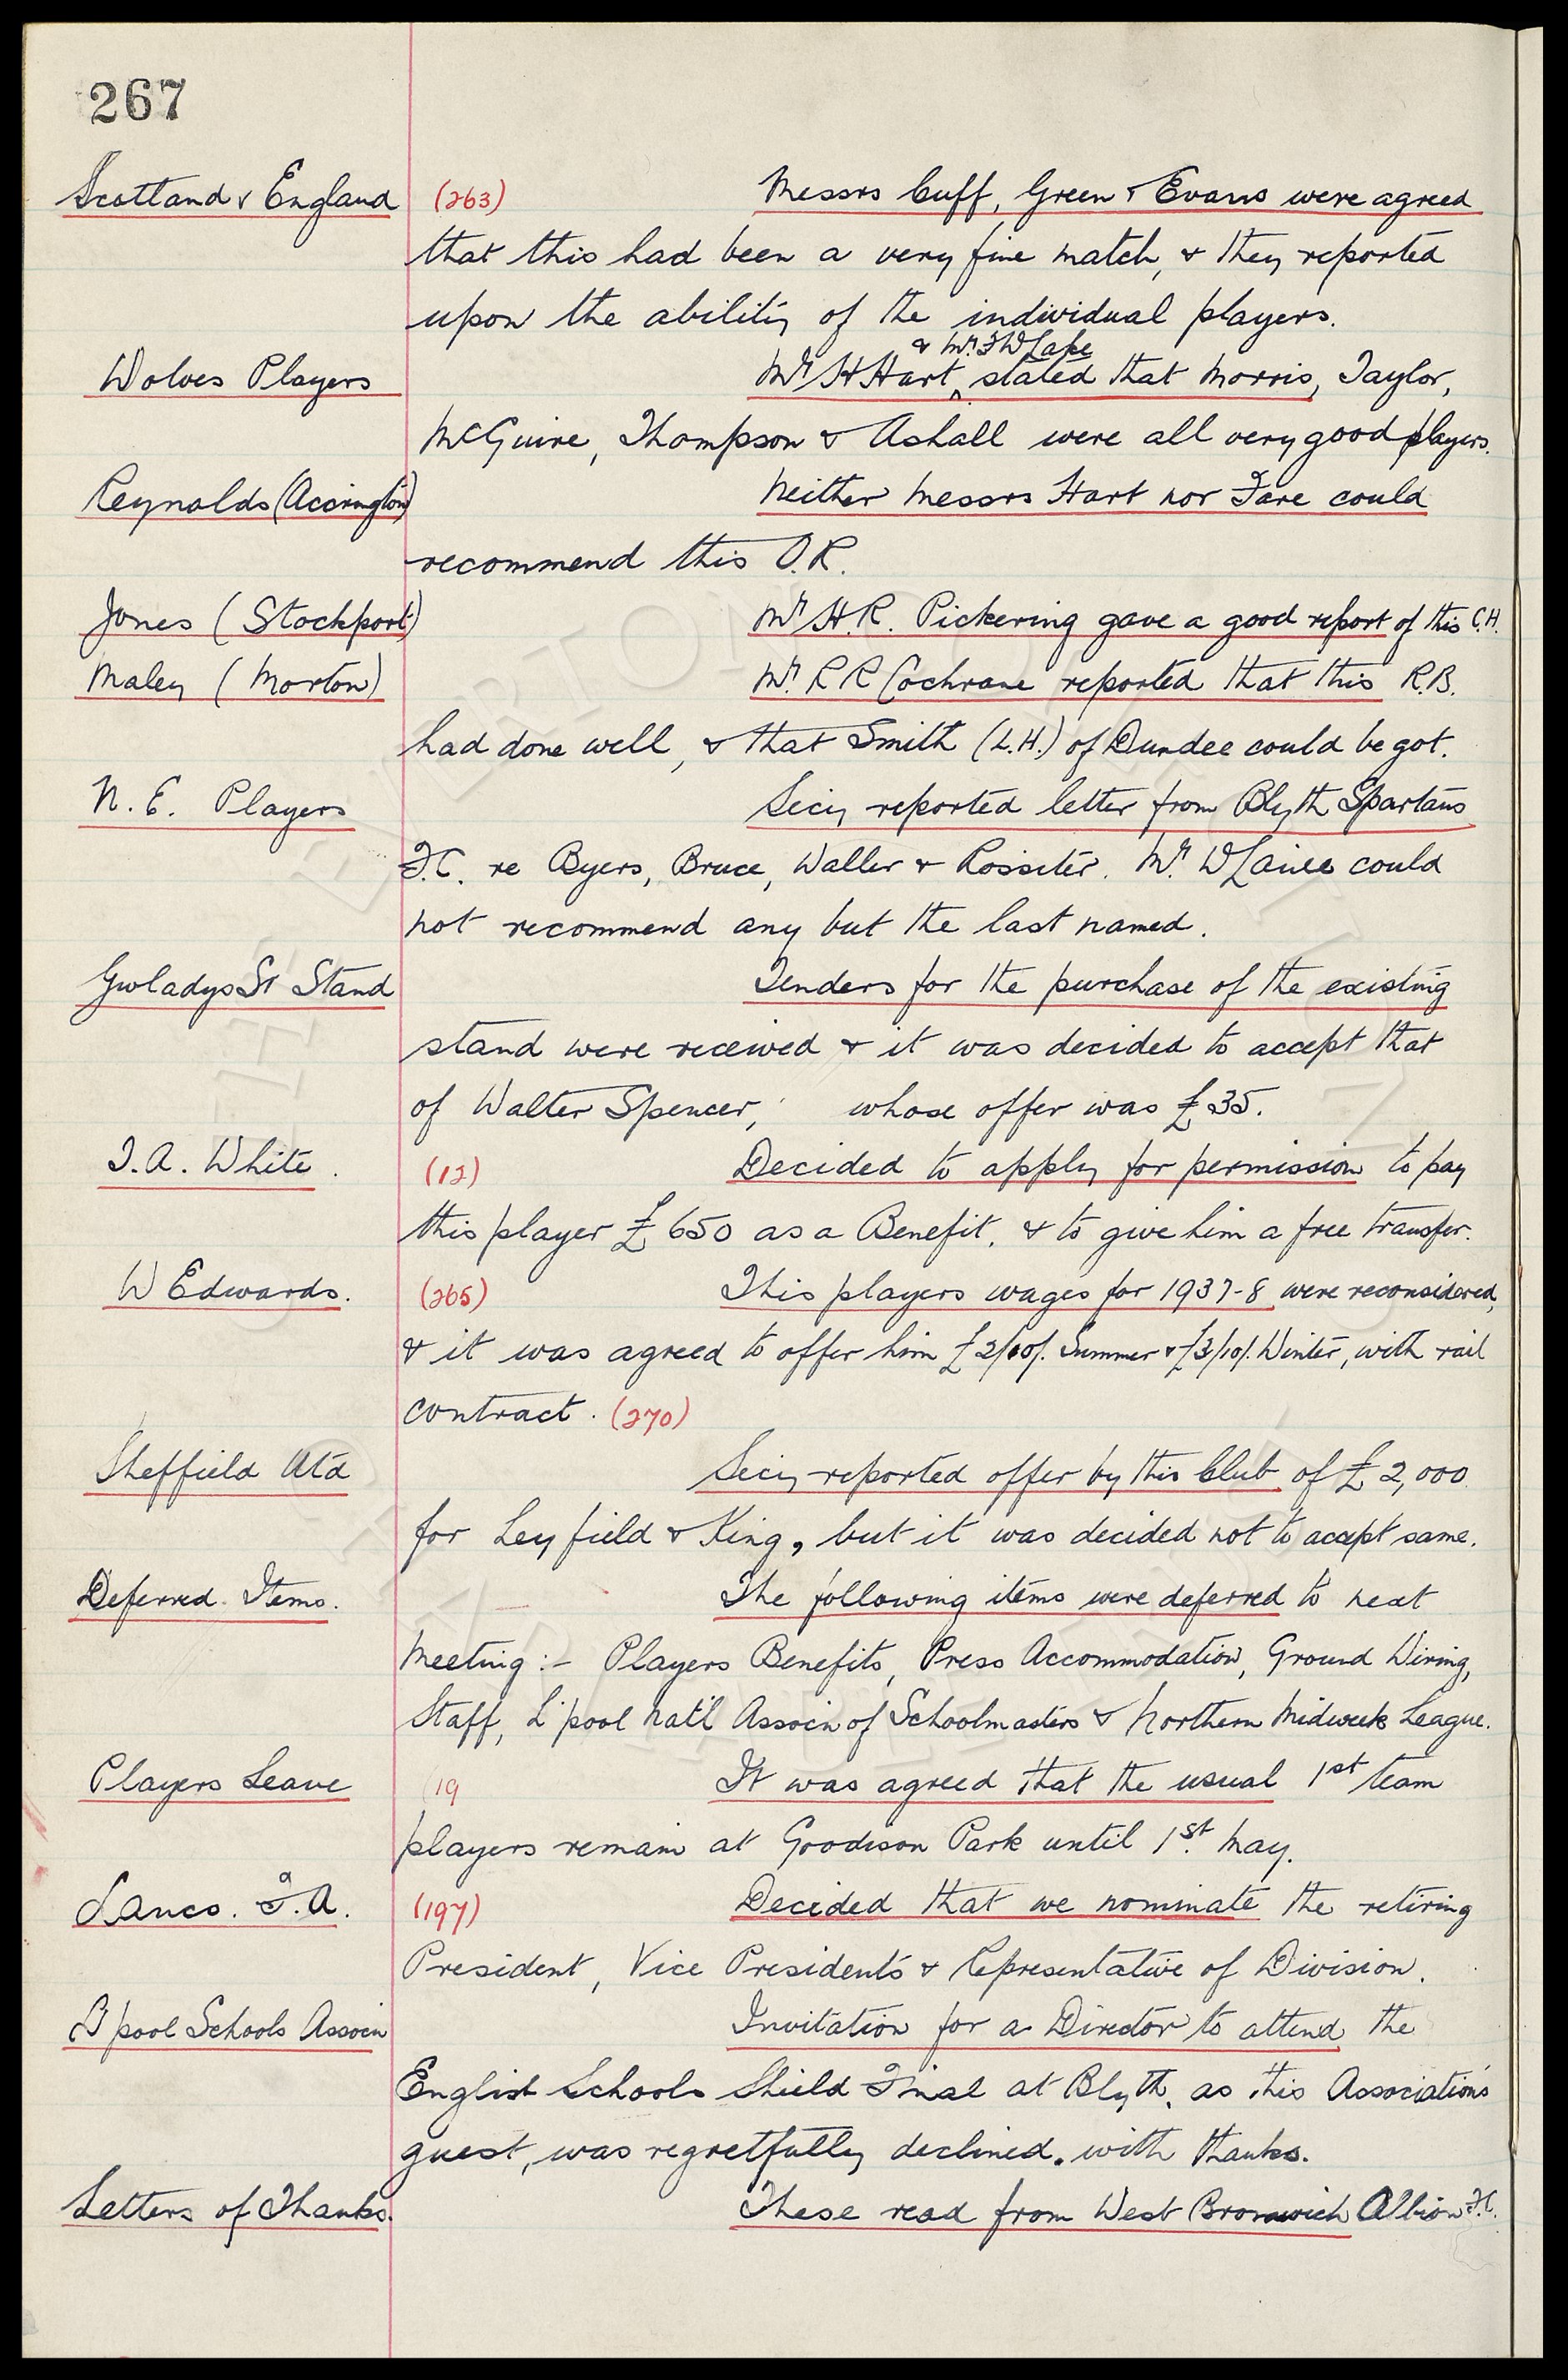 267
Scotland v England (263) Messrs Cuff, Green & Evans were agreed
that this had been a very fine match, & they reported
upon the ability of the individual players.
& Mr. F W Lake
Wolves Players Mr H Hart, stated that Morris, Taylor,
McGuire, Thompson & Ashall were all very good players.
Reynolds (Accrington) Neither Messrs Hart nor Fare could
recommend this O.R.
Jones (Stockport) Mr H.R. Pickering gave a good report of this C.H.
Maley (Morton) Mr. R R Cochrane reported that this R.B.
had done well, & that Smith (L.H.) of Dundee could be got.
N. E. Players Secy reported letter from Blyth Spartans
F.C. re Byers, Bruce, Waller & Rossiter. Mr. W could
not recommend any but the last named.
Gwladys St Stand Tenders for the purchase of the existing
stand were received & it was decided to accept that
of Walter Spencer, whose offer was £35.
T.A. White. (12) Decided to apply for permission to pay
this player £650 as a Benefit, & to give him a free transfer.
W Edwards. (265) This players wages for 1937-8 were reconsidered,
& it was agreed to offer him £2/10/. Summer & £3/10/. Winter, with rail
contract. (270)
Sheffield Utd Secy reported offer by this Club of £2,000
for Leyfield & King, but it was decided not to accept same.
Deferred Items. The following items were deferred to next
Meeting:- Players Benefits, Press Accommodation, Ground Wiring,
Staff, L'pool Nat'l Associn of Schoolmasters & Northern Midweek League.
Players Leave (19 It was agreed that the usual 1st team
players remain at Goodison Park until 1st. May.
Lancs. F.A. (197) Decided that we nominate the retiring
President, Vice Presidents & Representative of Division.
L'pool Schools Associn Invitation for a Director to attend the
English Schools Shield Final at Blyth, as this Association's
guest, was regretfully declined. with thanks.
Letters of Thanks. These read from West Bromwich Albion F.C.